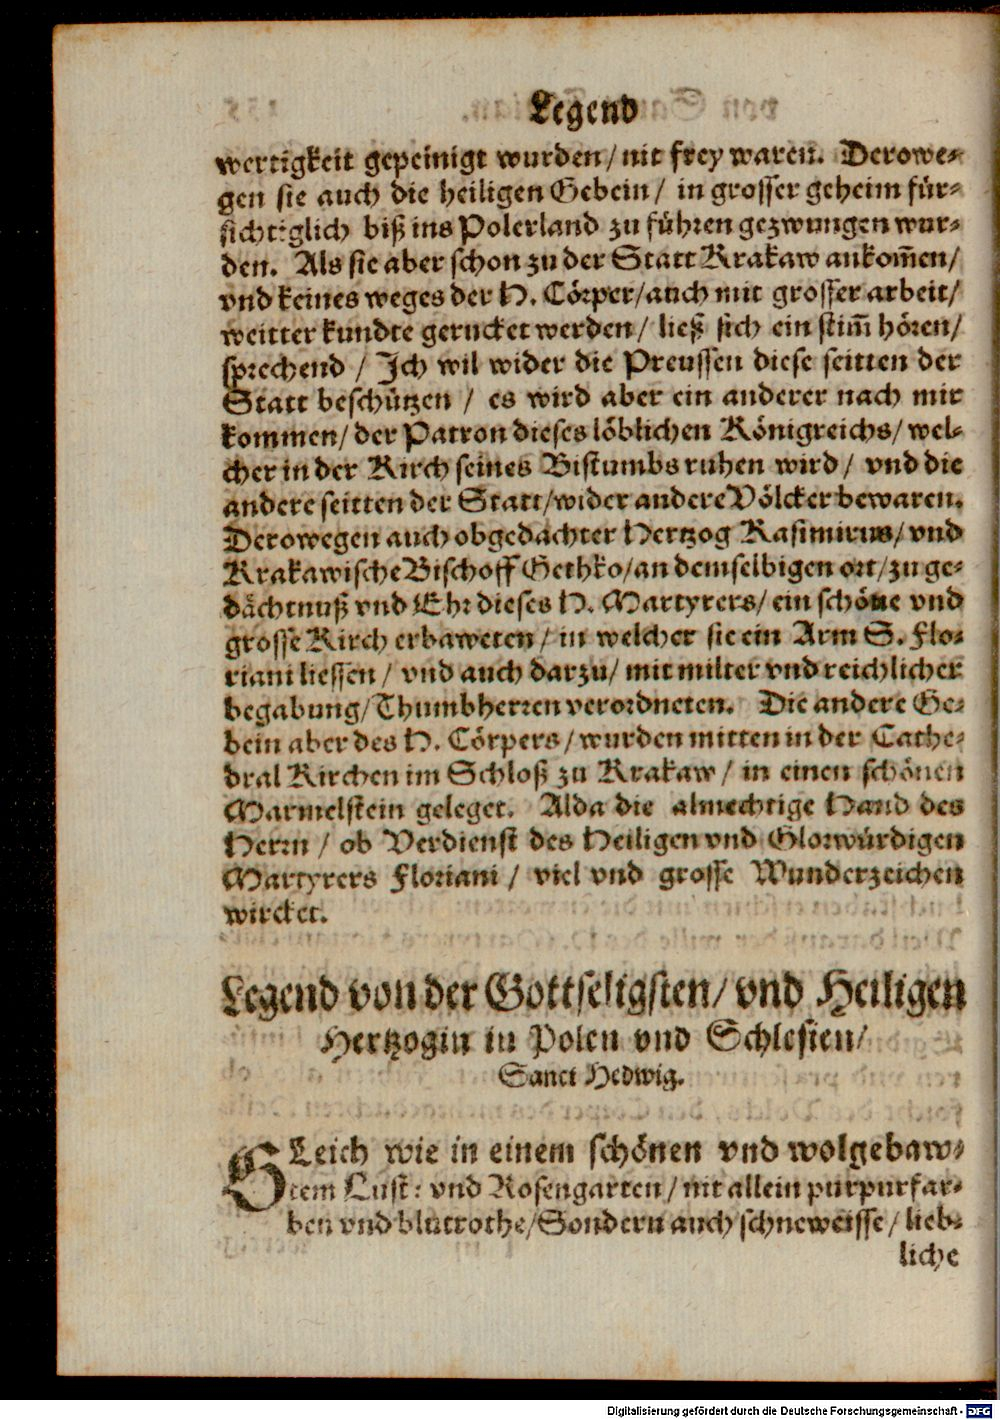 Legend
wertigkeit gepeinigt wurden/nit frey waren. Derowe-
gen sie auch die heiligen Gebein/ in grosser geheim für-
sichtiglich biß ins Polerland zu führen gezwungen wur-
den. Als sie aber schon zu der Statt Krakaw ankom̃en/
vnd keines weges der H. Cörper/auch mit grosser arbeit/
weitter kundte gerucket werden/ ließ sich ein stim̃ hören/
sprechend / Ich wil wider die Preussen diese seitten der
Statt beschützen / es wird aber ein anderer nach mir
kommen/ der Patron dieses löblichen Königreichs/ wel-
cher in der Kirch seines Bistumbs ruhen wird/ vnd die
andere seitten der Statt/wider andere Völcker bewaren.
Derowegen auch obgedachter Hertzog Kasimirus/ vnd
Krakawische Bischoff Gethko/an demselbigen ort/zu ge-
dächtnuß vnd Ehr dieses H. Martyrers/ ein schöne vnd
grosse Kirch erbaweten/ in welcher sie ein Arm S. Flo-
riani liessen/ vnd auch darzu/ mit milter vnd reichlicher
begabung/Thumbherren verordneten. Die andere Ge-
bein aber des H. Cörpers/wurden mitten in der Cathe-
dral Kirchen im Schloß zu Krakaw/ in einen schönen
Marmelstein geleget. Alda die almechtige Hand des
Herrn / ob Verdienst des Heiligen vnd Glorwürdigen
Martyrers Floriani / viel vnd grosse Wunderzeichen
wircket.
Legend von der Gottseligsten/ vnd Heiligen
Hertzogin in Polen vnd Schlesien/
Sanct Hedwig.
GLeich wie in einem schönen vnd wolgebaw-
tem Lust: vnd Rosengarten/nit allein purpurfar-
ben vnd blutrothe/Sondern auch schneweisse/ lieb-
liche
Digitalisierung gefördert durch die Deutsche Forschungsgemeinschaft - DFG